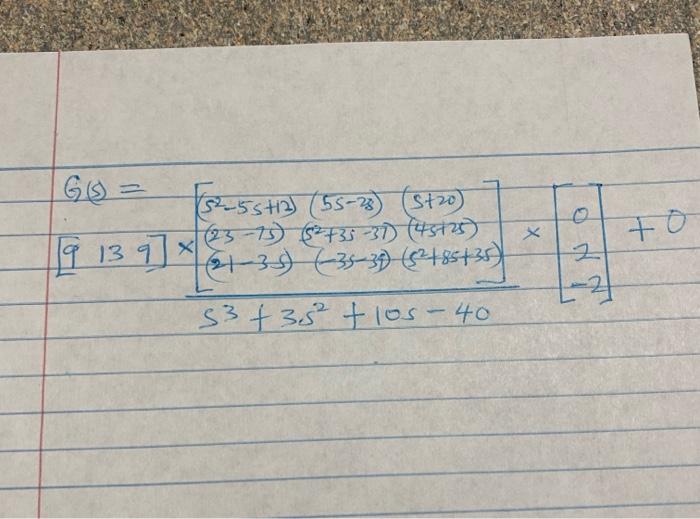 G(s) =
[9 13 9] × [(s²-5s+12) (5s-28) (s+20)
(23-7s) (s²+3s-37) (4s+25)
(21-3s) (-3s-39) (s²+8s+35)] × [0
2
-2] + 0
s3 + 3s² + 10s - 40